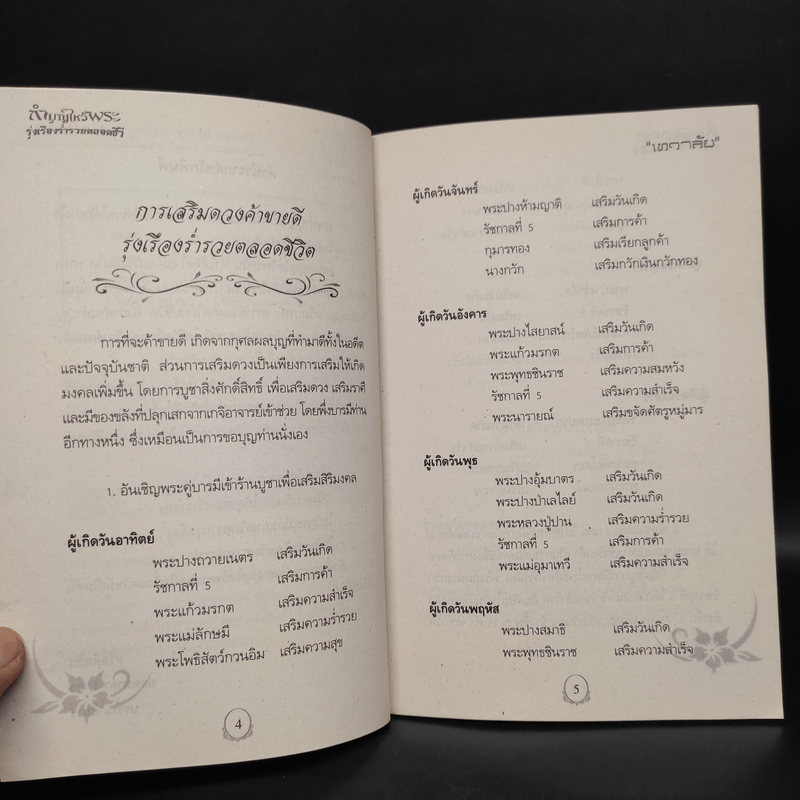 ตำนานไหว้พระ
รุ่งเรืองร่ำรวยตลอดชีวิ
การเสริมดวงค้าขายดี
รุ่งเรืองร่ำรวยตลอดชีวิต
การที่จะค้าขายดี เกิดจากกุศลผลบุญที่ทำมาดีทั้งในอดีต
และปัจจุบันชาติ ส่วนการเสริมดวงเป็นเพียงการเสริมให้เกิด
มงคลเพิ่มขึ้น โดยการบูชาสิ่งศักดิ์สิทธิ์ เพื่อเสริมดวง เสริมราศี
และมีของขลังที่ปลุกเสกจากเกจิอาจารย์เข้าช่วย โดยพึ่งบารมีท่าน
อีกทางหนึ่ง ซึ่งเหมือนเป็นการขอบุญท่านนั่งเอง
1. อันเชิญพระคู่บารมีเข้าร้านบูชาเพื่อเสริมสิริมงคล
ผู้เกิดวันอาทิตย์
พระปางถวายเนตร เสริมวันเกิด
รัชกาลที่ 5 เสริมการค้า
พระแก้วมรกต เสริมความสำเร็จ
พระแม่ลักษมี เสริมความร่ำรวย
พระโพธิสัตว์กวนอิม เสริมความสุข
4
"เทวาลัย"
ผู้เกิดวันจันทร์
พระปางห้ามญาติ เสริมวันเกิด
รัชกาลที่ 5 เสริมการค้า
กุมารทอง เสริมเรียกลูกค้า
นางกวัก เสริมกวักเงินกวักทอง
ผู้เกิดวันอังคาร
พระปางไสยาสน์ เสริมวันเกิด
พระแก้วมรกต เสริมการค้า
พระพุทธชินราช เสริมความสมหวัง
รัชกาลที่ 5 เสริมความสำเร็จ
พระนารายณ์ เสริมขจัดศัตรูหมู่มาร
ผู้เกิดวันพุธ
พระปางอุ้มบาตร เสริมวันเกิด
พระปางป่าเลไลย์ เสริมวันเกิด
พระหลวงปู่ปาน เสริมความร่ำรวย
รัชกาลที่ 5 เสริมการค้า
พระแม่อุมาเทวี เสริมความสำเร็จ
ผู้เกิดวันพฤหัส
พระปางสมาธิ เสริมวันเกิด
พระพุทธชินราช เสริมความสำเร็จ
5